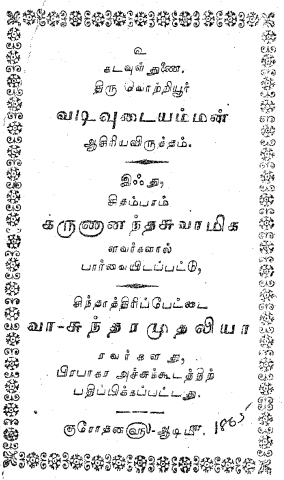 உ
கடவுள் துணை.
திரு வொற்றியூர்
வடிவுடையம்மன்
ஆசிரியவிருத்தம்.
இஃது,
சிதம்பரம்
க்ருணானந்தசுவாமிக
ளவர்களால்
பார்வையிடப்பட்டு,
சிந்தாத்திரிப்பேட்டை
வா-சுந்தரமுதலியா
ரவர்களது,
பிரபாகர அச்சுக்கூடத்திற்
பதிப்பிக்கப்பட்டது.
குரோதன௵-ஆடிமீ.
1865